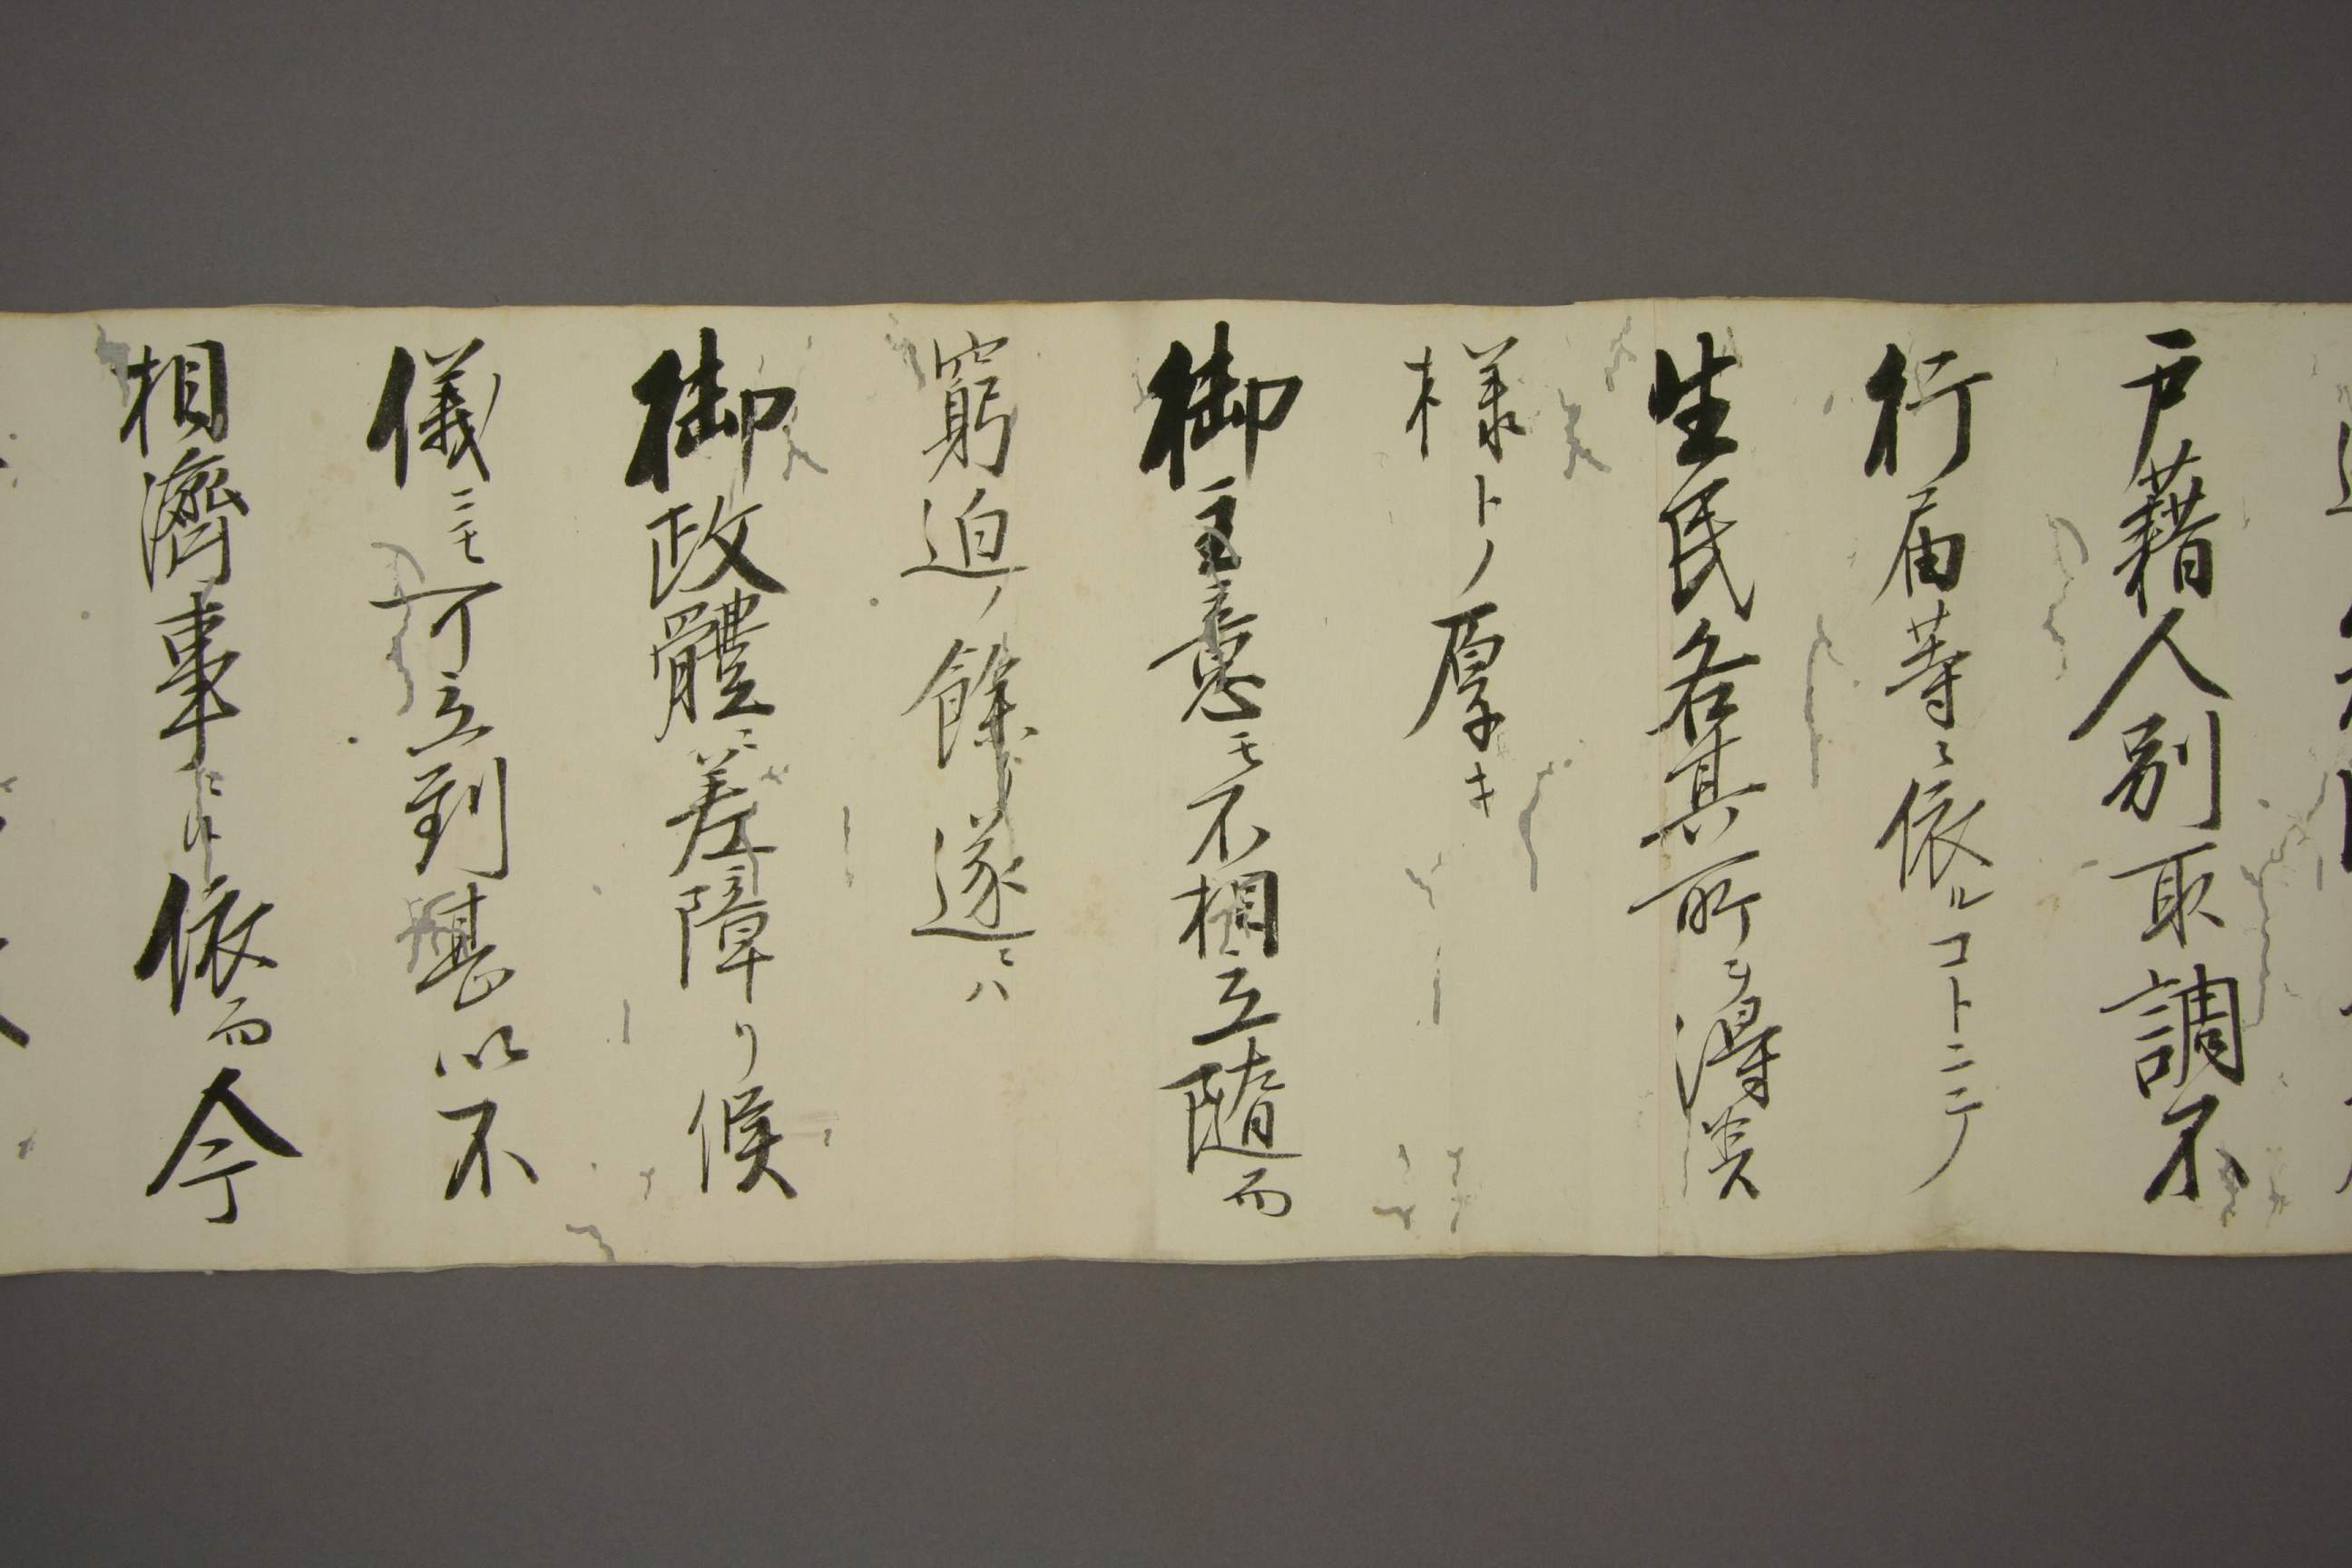 戸藉人別取調不
行届等ニ依ルコトニテ
生民各其所ヲ得候
様トノ厚キ
御主意モ不相立随而
窮迫ノ餘リ遂ニハ
御政體ニ差障リ候
儀ニモ可立到甚以不
相濟事ニ付依而今